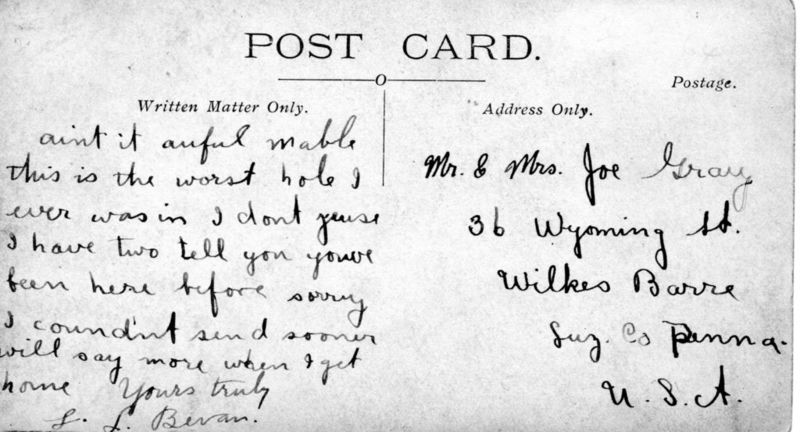 POST CARD.
Written Matter Only.
Address Only.
Postage.
aint it auful mable
this is the worst hole I
ever was in I dont geuse
I have two tell you youve
been here before sorry
I counndnt send sooner
will say more when I get
home Yours truly
L. L. Bevan.
Mr. & Mrs. Joe Gray
36 Wyoming St.
Wilkes Barre
Luz. Co Penna.
U. S. A.